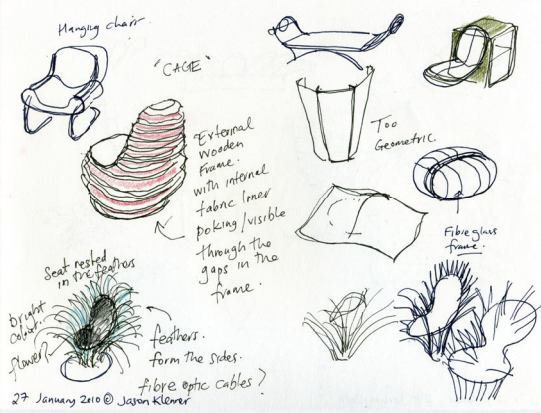 Hanging chair.
"CAGE"
External
wooden
frame.
with internal
fabric liner
poking/visible
through the
gaps in the
frame.
Too
Geometric.
Fibreglass
frame.
Seat nested
in the feathers
bright
colour.
flower?
feathers.
form the sides.
fibre optic cables?
27 January 2010 © Jason Klenner